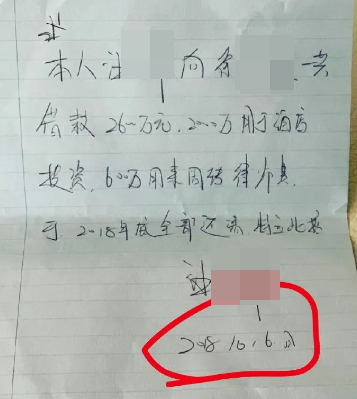 本人 向 共
借款2600万元，2000万用于酒店
投资，600万用来周转律师费，
于2018年底全部还清，特立此据
2018.10.6日